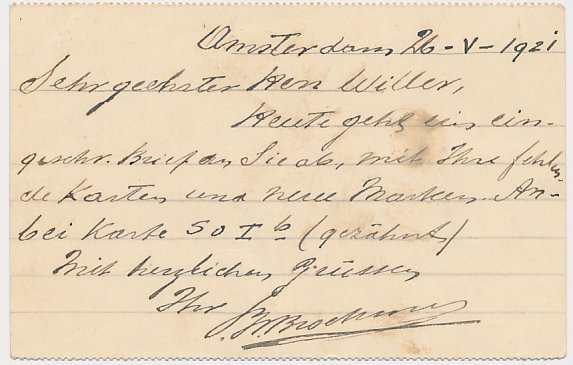 Amsterdam 26-V-1921
Sehr geehrter Herr Willer,
Heute geht ein ein-
geschr. Brief an Sie ab, mit Ihre fehlen-
de Karten und neue Marken. An-
bei Karte 50 I b (gezähnt)
Mit herzlichen Grüssen
Ihr